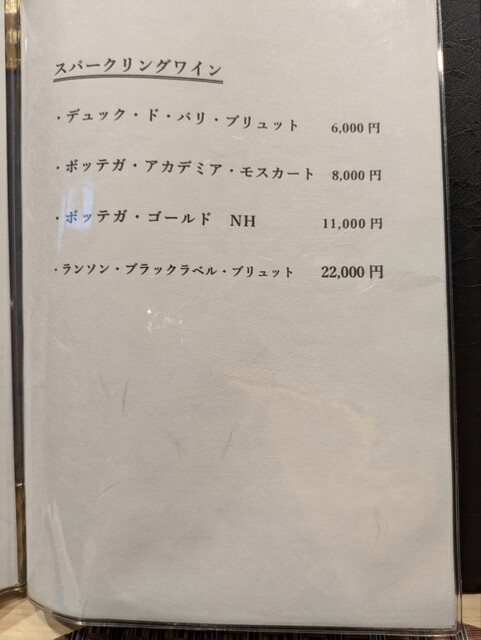 スパークリングワイン
・デュック・ド・パリ・ブリュット 6,000円
・ボッテガ・アカデミア・モスカート 8,000円
・ボッテガ・ゴールド NH 11,000円
・ランソン・ブラックラベル・ブリュット 22,000円